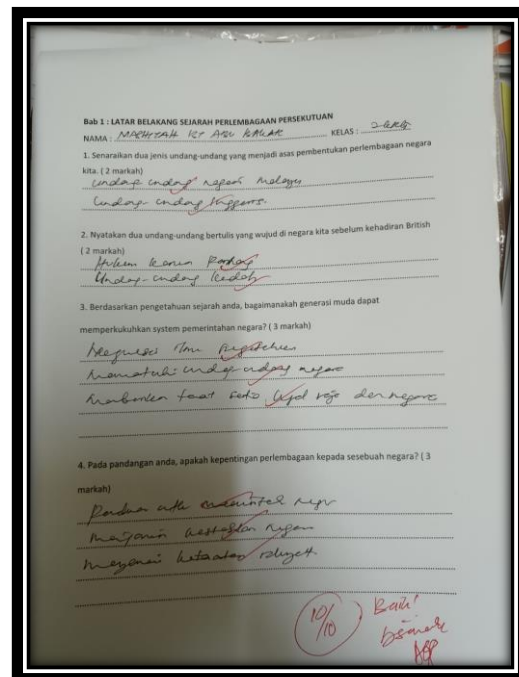 Bab 1 : LATAR BELAKANG SEJARAH PERLEMBAGAAN PERSEKUTUAN
NAMA : KELAS :
1. Senaraikan dua jenis undang-undang yang menjadi asas pembentukan perlembagaan negara
kita. ( 2 markah)
undang-undang negeri melayu
undang-undang Inggeris.
2. Nyatakan dua undang-undang bertulis yang wujud di negara kita sebelum kehadiran British
( 2 markah)
Hukum kanun Pahang
Undang-undang kedah
3. Berdasarkan pengetahuan sejarah anda, bagaimanakah generasi muda dapat
memperkukuhkan system pemerintahan negara? ( 3 markah)
Menguasai ilmu
Mematuhi undang-undang negara
taat setia raja dan negara
4. Pada pandangan anda, apakah kepentingan perlembagaan kepada sesebuah negara? ( 3
markah)
Panduan
Menjamin kestabilan negara
ketaatan rakyat
10/10 Baik!